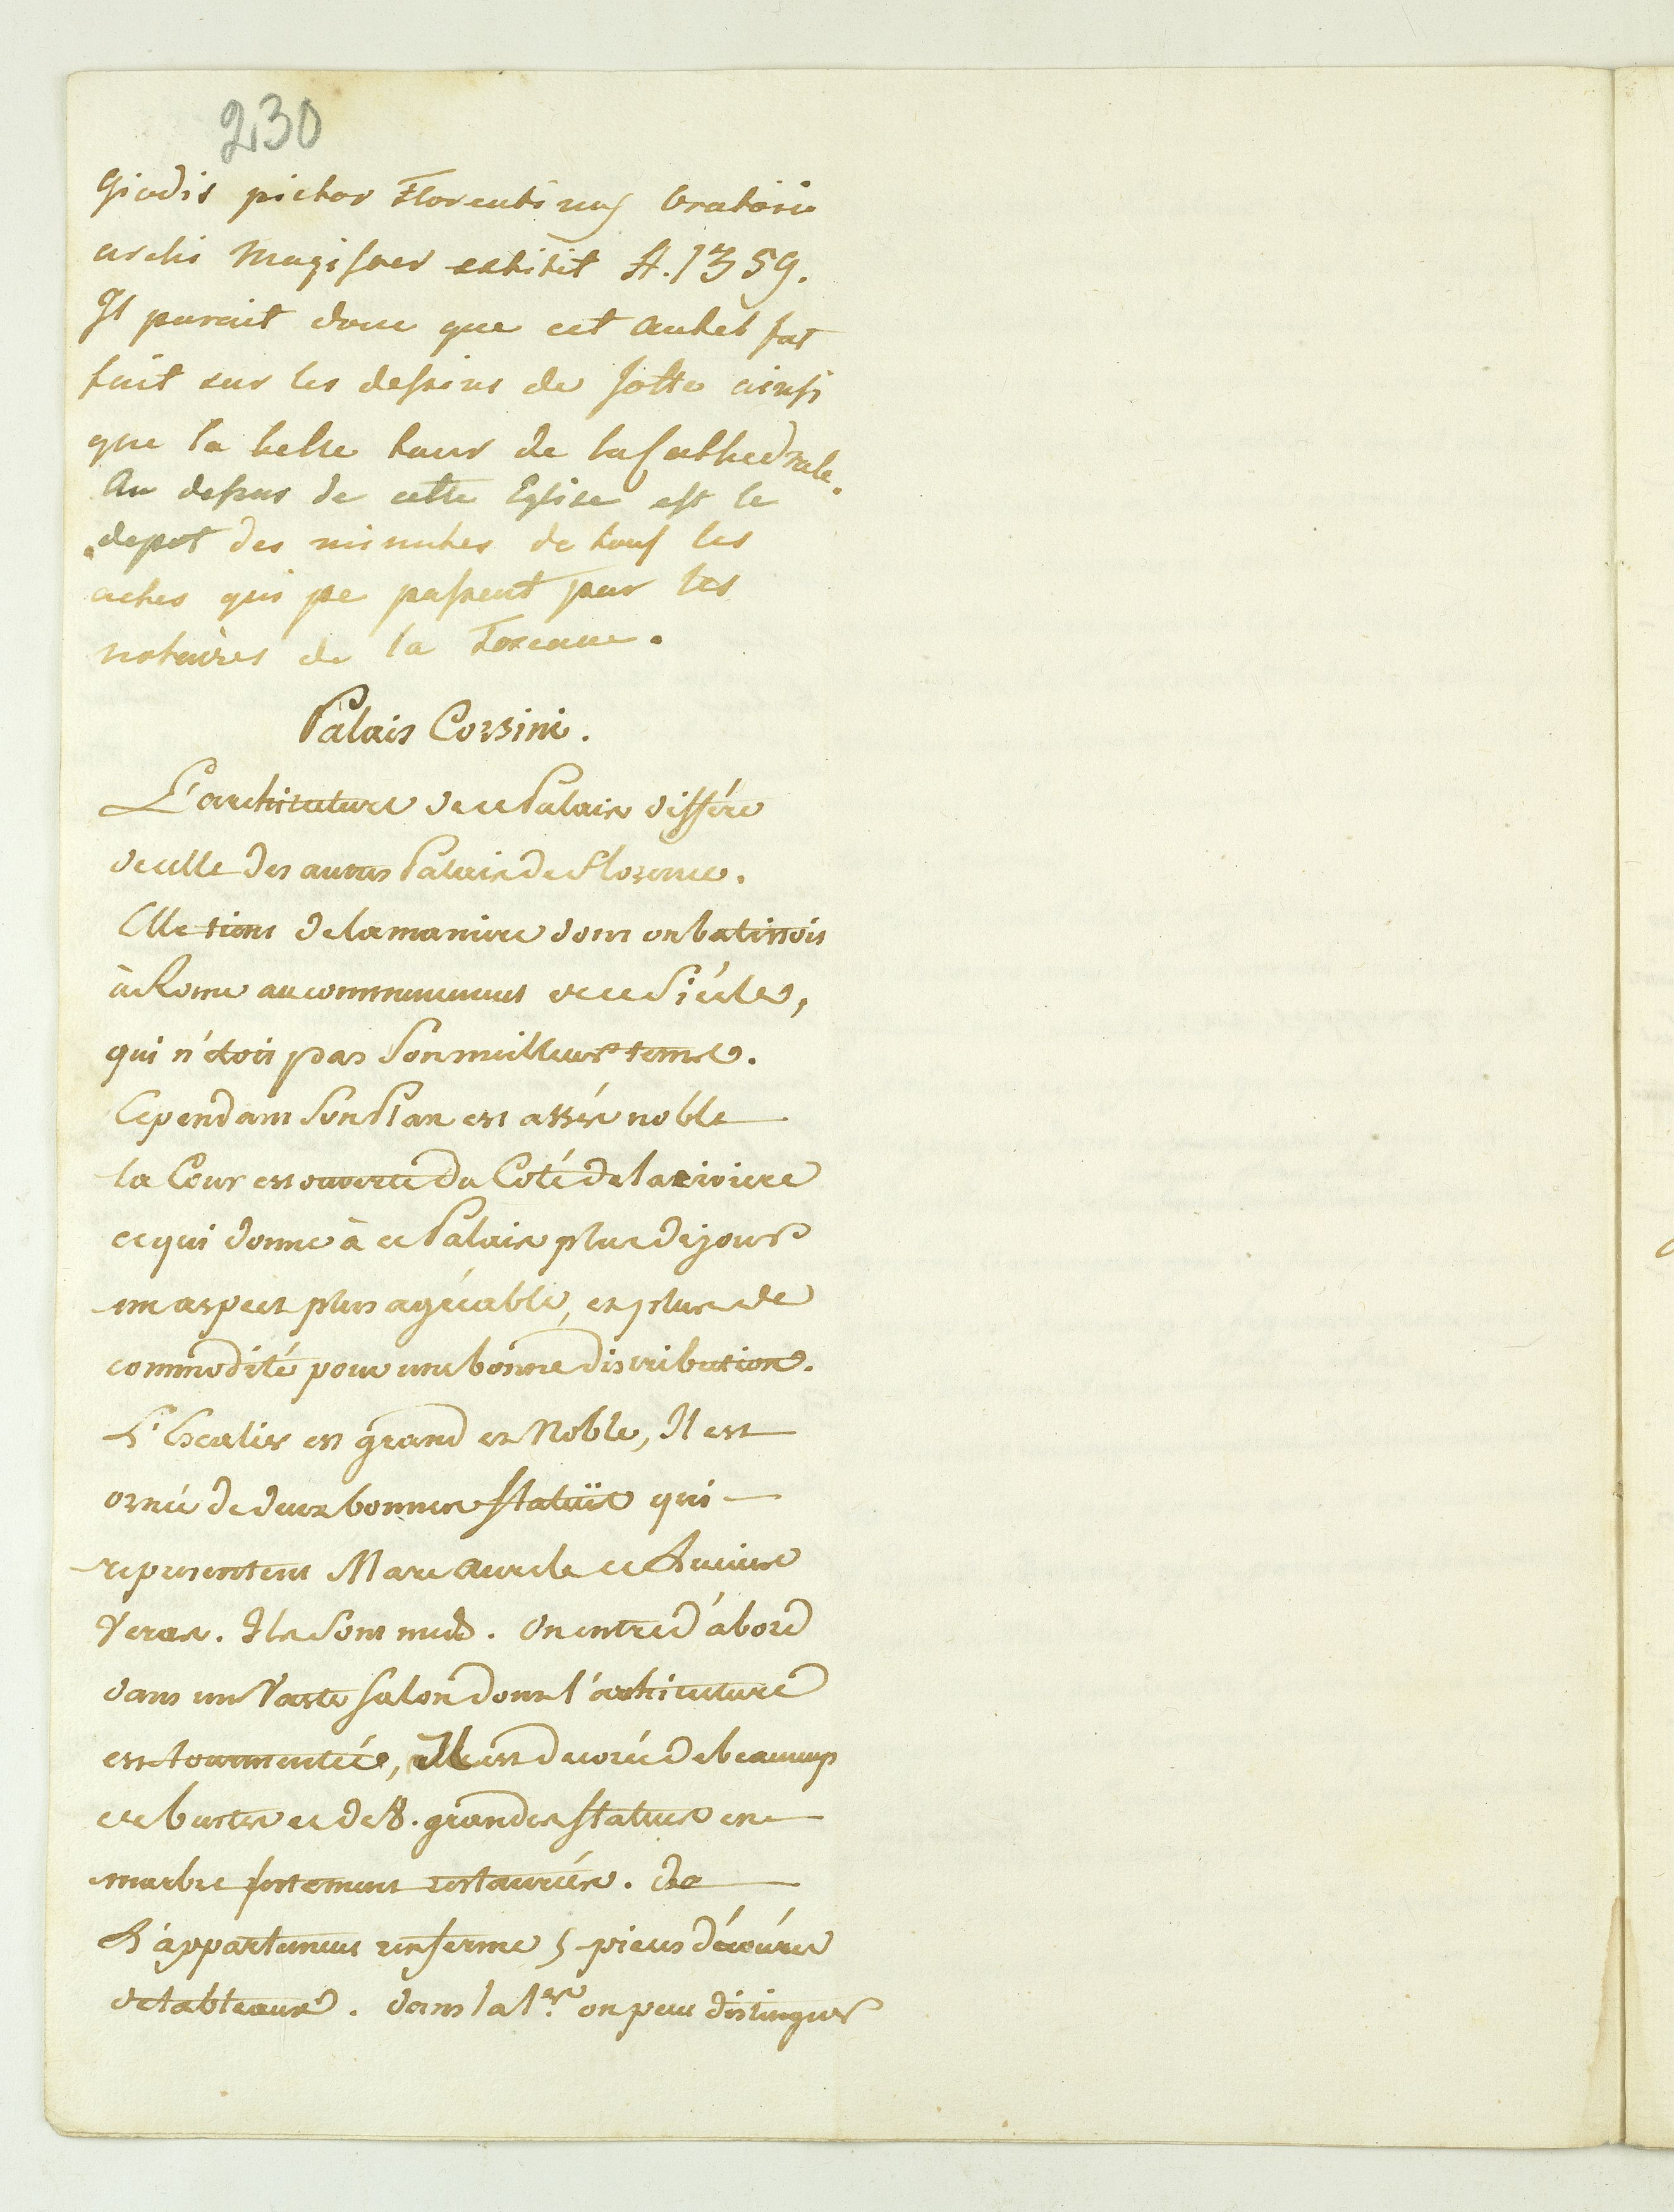 230
Giodis pictor Florentinus Oratorii
archi Magister extitit A. 1359.
Il parait donc que cet autel fut
fait sur les dessins de Jotto ainsi
que la belle tour de la Cathedrale.
Au dessus de cette Eglise est le
depot des minutes de tous les
actes qui se passent par les
notaires de la Toscane.
Palais Corsini.
L'architecture de ce Palais différe
de celle des autres Palais de Florence.
Elle tient de la maniere dont on batissoit
à Rome au commencement de ce Siécle,
qui n'étoit pas Son meilleur tems.
Cependant Son Plan est assés noble
la Cour est ouverte du Coté de la riviere
ce qui donne à ce Palais plus de jour
un aspect plus agréable, et plus de
commodité pour une bonne distribution.
L'Escalier est grand et Noble, Il est
orné de deux bonnes statuës qui
representent Marc Aurele et Lucius
Verus. Ils Sont nuds. On entre d'abord
dans un Vaste Salon dont l'architecture
est tourmentée, Il est decoré de beaucoup
de bustes et de 8. grandes statues en
marbre fortement restaurées.
L'appartement renferme 5 pieces décorées
de tableaux. dans la 1.re on peut distinguer